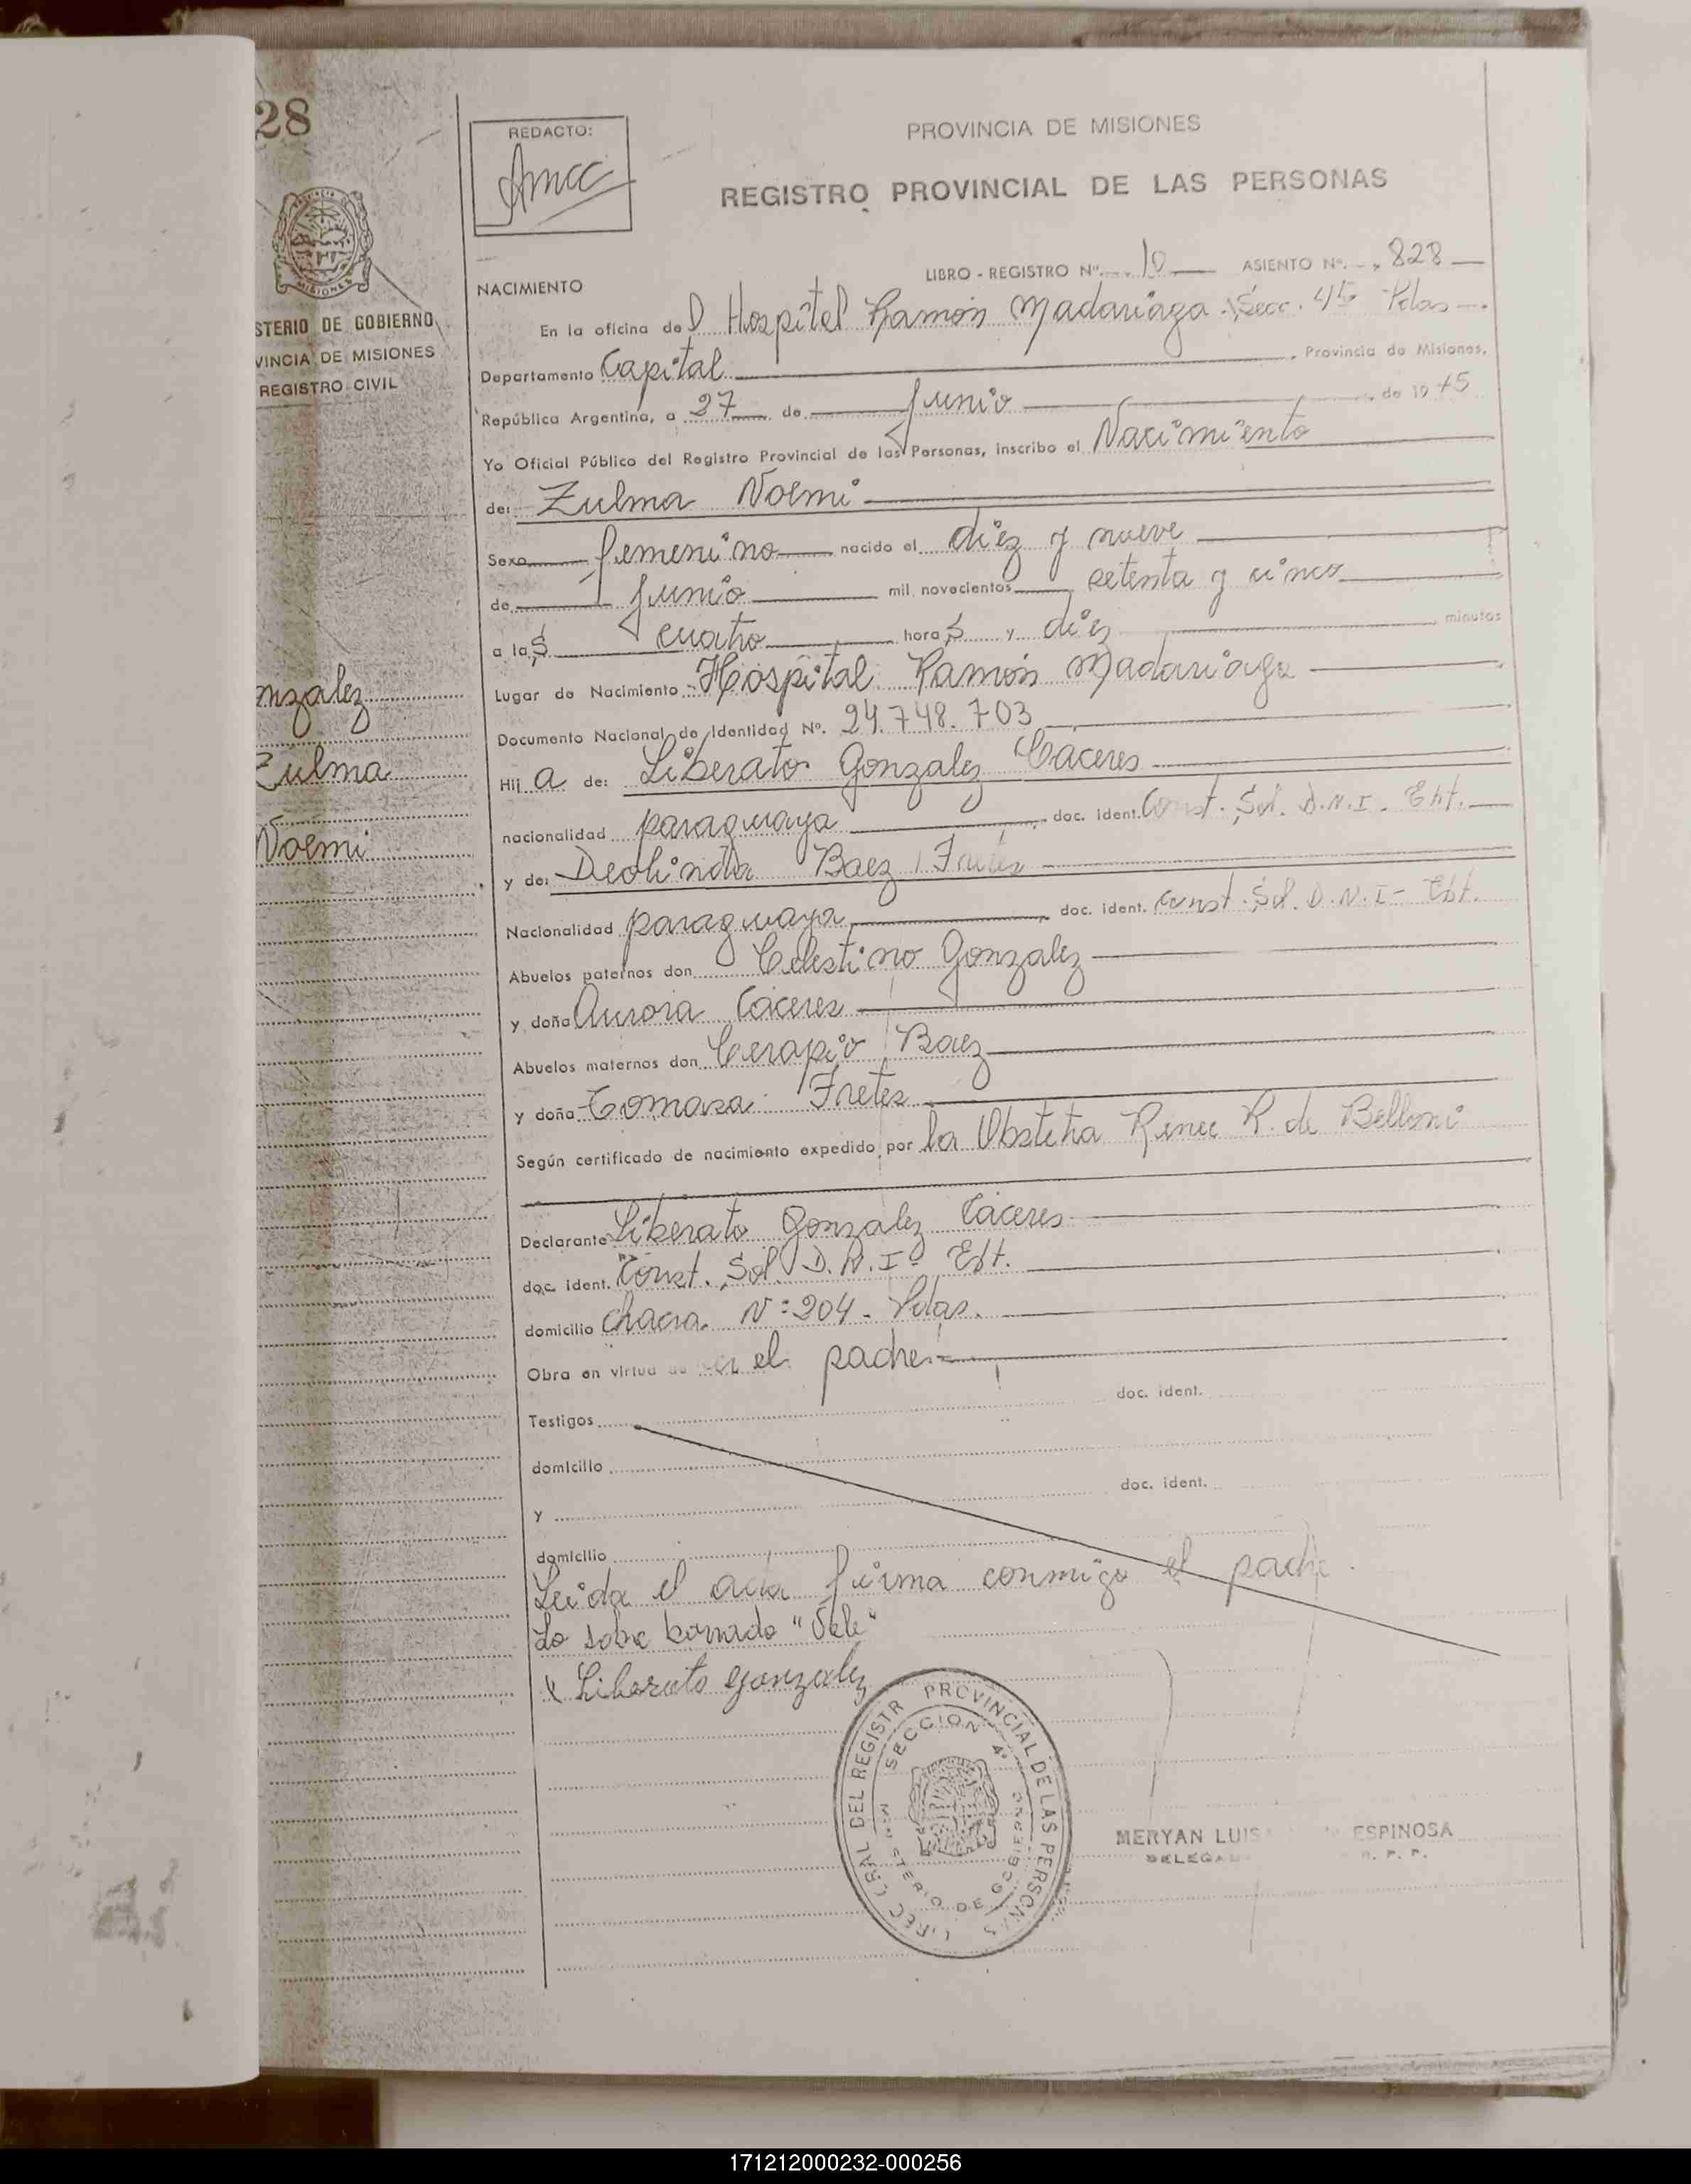 28
STERIO DE GOBIERNO
VINCIA DE MISIONES
REGISTRO CIVIL
nzalez
Zulma
Noemi
REDACTO:
PROVINCIA DE MISIONES
REGISTRO PROVINCIAL DE LAS PERSONAS
LIBRO - REGISTRO Nº. 10 ASIENTO Nº. 828
NACIMIENTO
En la oficina del Hospital Ramón Madariaga Secc. 4ta Pdas
Departamento Capital, Provincia de Misiones,
República Argentina, a 27 de Junio de 1975
Yo Oficial Público del Registro Provincial de las Personas, inscribo el Nacimiento
de: Zulma Noemi
Sexo femenino nacido el diez y nueve
de Junio mil novecientos setenta y cinco
a las cuatro horas y diez minutos
Lugar de Nacimiento Hospital Ramón Madariaga
Documento Nacional de Identidad Nº. 24.748.703
Hij a de: Liberato Gonzalez Cáceres
nacionalidad paraguaya, doc. ident. Const. Sol. D.N.I. Ext.
y de: Deolinda Baez Fretes
Nacionalidad paraguaya, doc. ident. Const. Sol. D.N.I- Ext.
Abuelos paternos don Celestino Gonzalez
y doña Aurora Cáceres
Abuelos maternos don Cerapio Baez
y doña Tomasa Fretes
Según certificado de nacimiento expedido por la Obstetra Renee R. de Belloni
Declarante Liberato Gonzalez Cáceres
doc. ident. Const. Sol. D.N.I- Ext.
domicilio Chacra Nº: 204 - Pdas.
Obra en virtud de ser el padre.-
Testigos doc. ident.
domicilio
y doc. ident.
domicilio
Leida el acta firma conmigo el padre.
Lo sobre borrado "Vale"
x Liberato Gonzalez
PROVINCIAL DE LAS PERSONAS
DEL REGISTR
SECCION 4ª
MINISTERIO DE GOBIERNO
MERYAN LUIS ESPINOSA
DELEGA R. P. P.
171212000232-000256